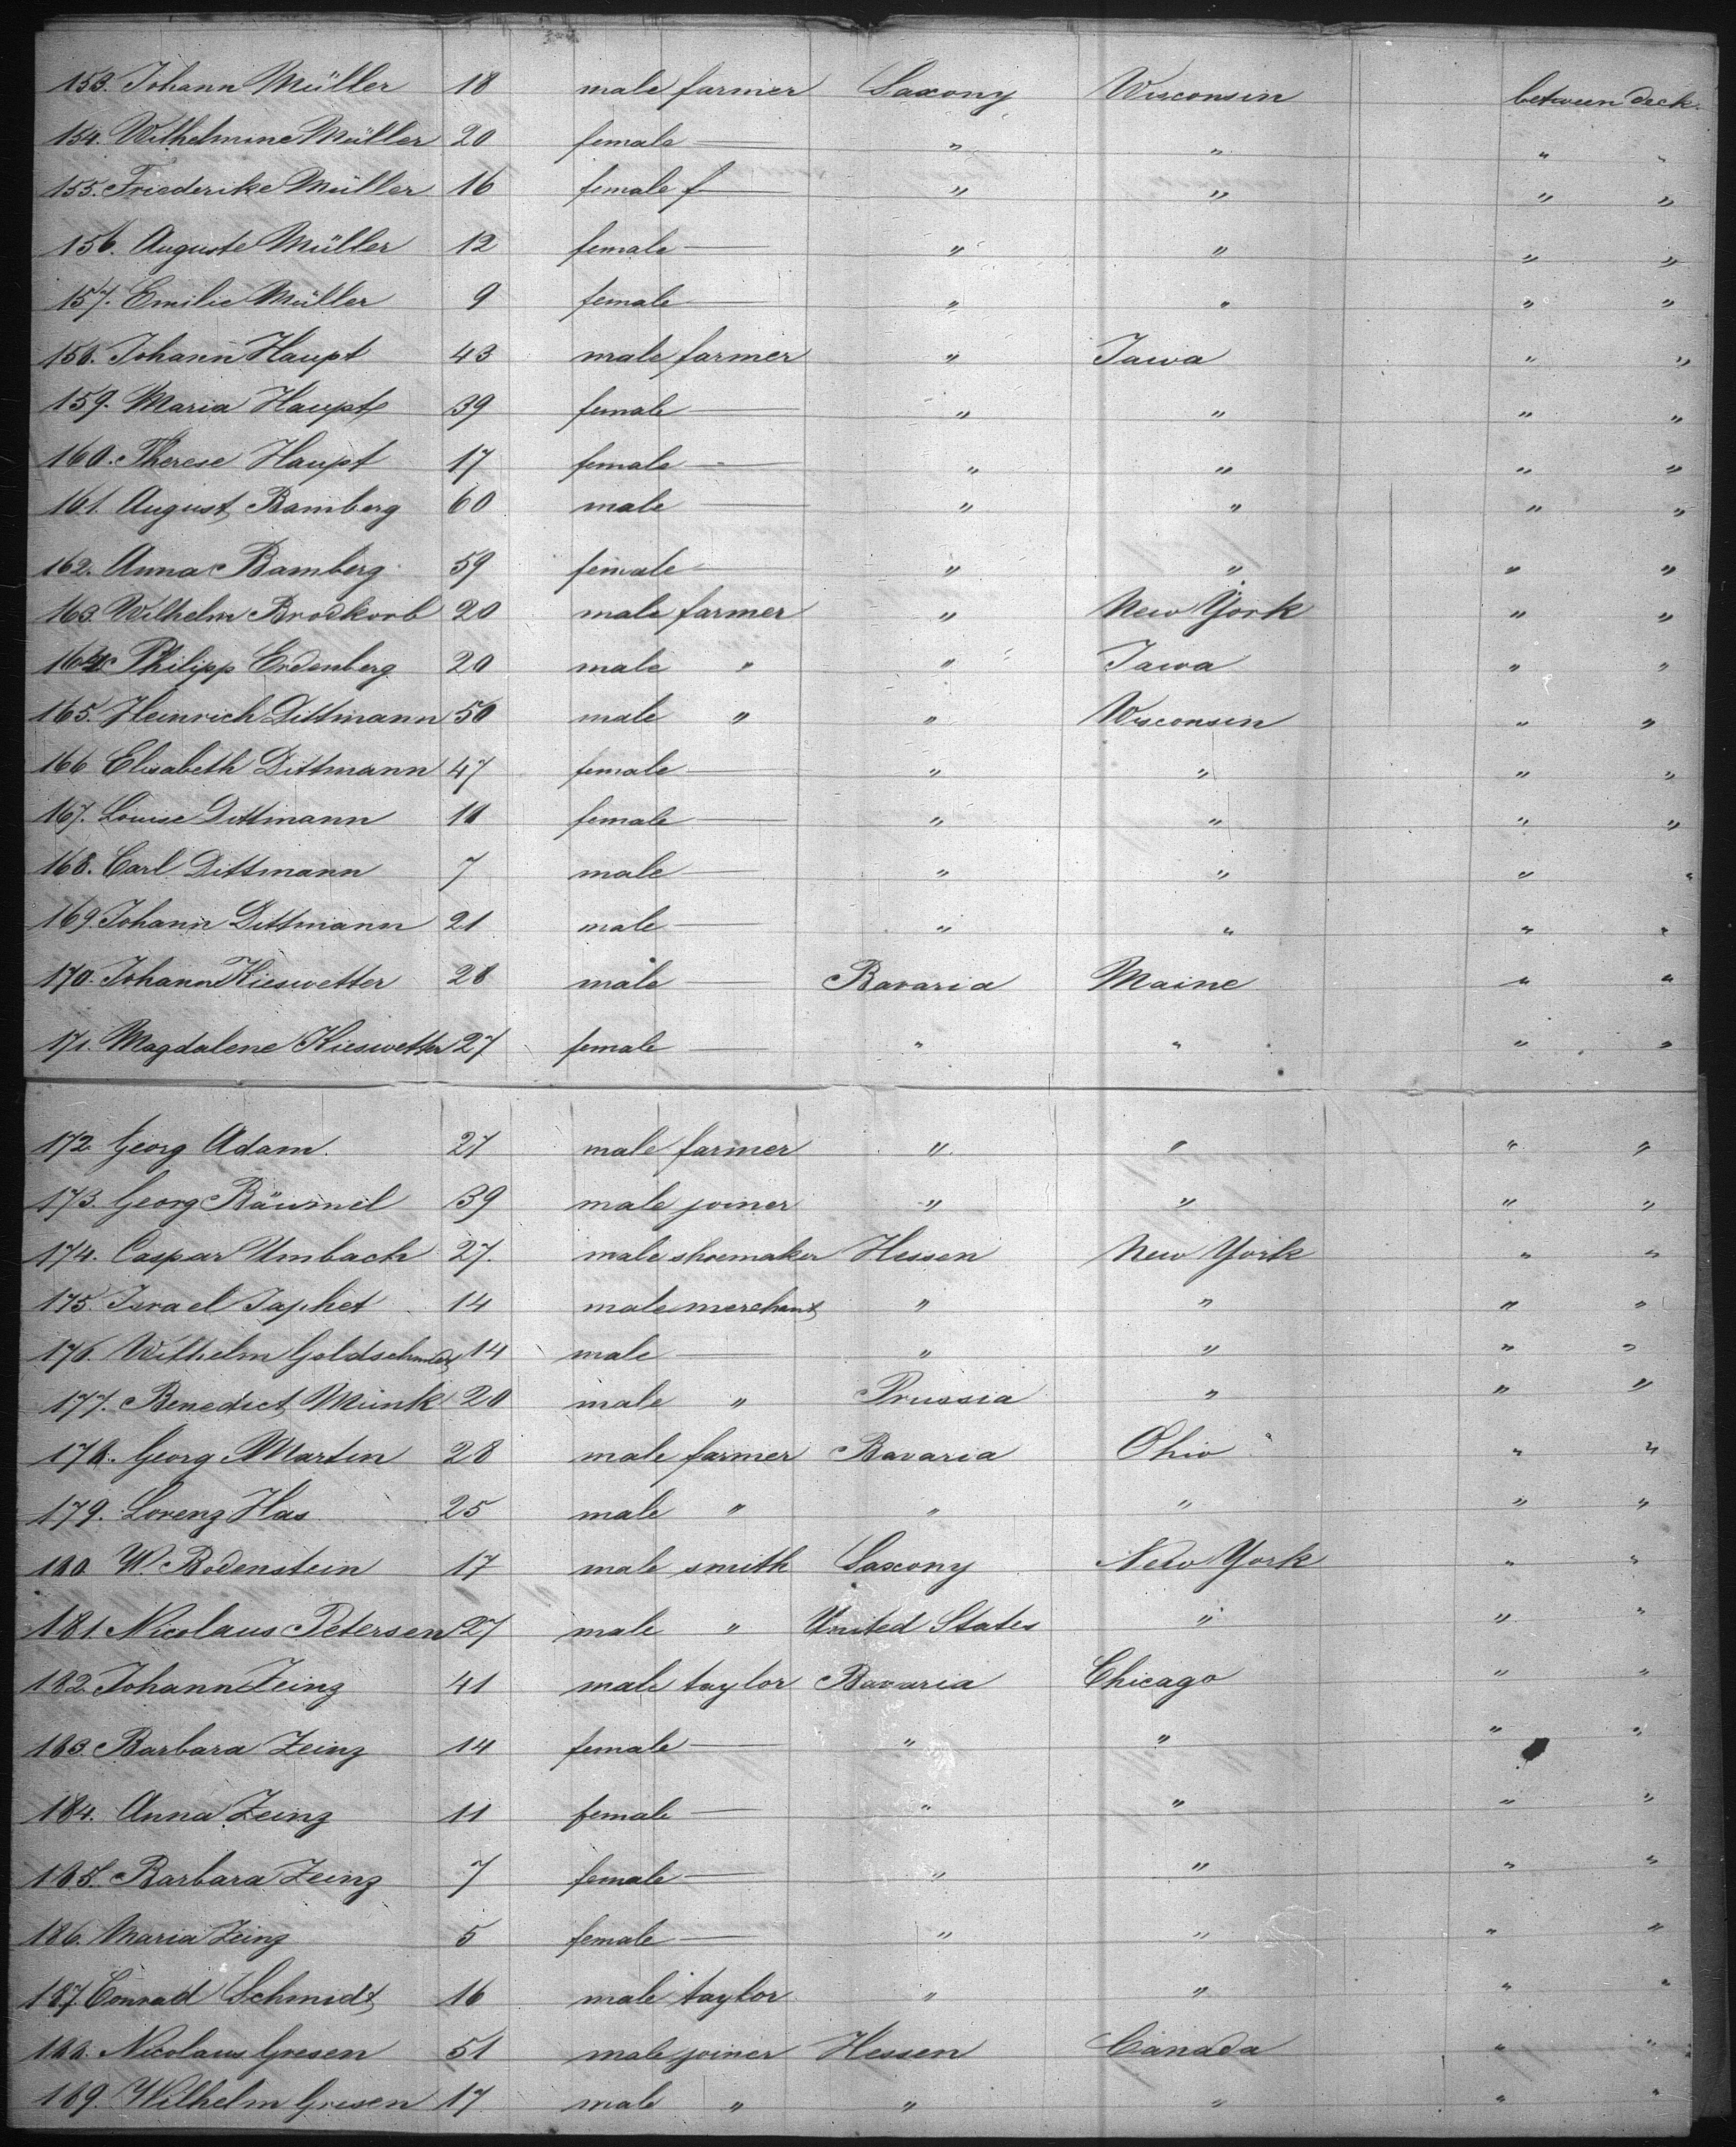 153. Johann Müller 18 male farmer Saxony Wisconsin between deck.
154. Wilhelmine Müller 20 female — " " " "
155. Friederike Müller 16 female f— " " " "
156. Auguste Müller 12 female — " " " "
157. Emilie Müller 9 female — " " " "
158. Johann Haupt 43 male farmer " Iawa " "
159. Maria Haupt 39 female — " " " "
160. Therese Haupt 17 female — " " " "
161. August Bamberg 60 male — " " " "
162. Anna Bamberg 59 female — " " " "
163. Wilhelm Brodkorb 20 male farmer " New York " "
164. Philipp Erdenberg 20 male " " Iawa " "
165. Heinrich Dittmann 50 male " " Wisconsin " "
166 Elisabeth Dittmann 47 female — " " " "
167. Louise Dittmann 18 female — " " " "
168. Carl Dittmann 7 male — " " " "
169. Johann Dittmann 21 male — " " " "
170. Johann Kieswetter 28 male — Bavaria Maine " "
171. Magdalene Kieswetter 27 female — " " " "
172. Georg Adam. 27 male farmer " " " "
173. Georg Bäumel 39 male joiner " " " "
174. Caspar Umbach 27. male shoemaker Hessen New York " "
175. Israel Japhet 14 male merchant " " " "
176. Wilhelm Goldschmidt 14 male — " " " "
177. Benedict Münk 20 male " Prussia " " "
178. Georg Martin 28 male farmer Bavaria Ohio " "
179. Lorenz Has 25 male " " " " "
180. W. Bodenstein 17 male smith Saxony New York " "
181. Nicolaus Petersen 27 male " United States " " "
182. Johann Zeinz 41 male taylor Bavaria Chicago " "
183. Barbara Zeinz 14 female — " " " "
184. Anna Zeinz 11 female — " " " "
185. Barbara Zeinz 7 female — " " " "
186. Maria Zeinz 5 female — " " " "
187. Conrad Schmidt 16 male taylor " " " "
188. Nicolaus Gresen 51 male joiner Hessen Canada " "
189. Wilhelm Gresen 17 male " " " " "